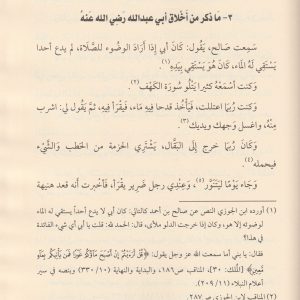 ٣- ما ذكر من أخلاق أبي عبدالله رضي الله عنه
سمعت صالح، يَقُول: كَانَ أبي إذا أرَادَ الوضُوء للصَّلَاة، لم يدع أحدا
يَسْتَقِي لَهُ الْمَاء، كَانَ هُوَ يَسْتَقِي بِيَدِهِ(١).
وَكنت أسْمَعُهُ كثيرا يَتْلُو سُورَة الكَهْف(٢).
وَكَانَ رُبمَا اعتللت، فَيَأْخُذ قدحا فِيهِ مَاء، فَيقْرَأ فِيهِ، ثمَّ يَقُول لي: اشرب
مِنْهُ، واغسل وَجهك ويديك(٣).
وَكَانَ رُبمَا خرج إلَى الْبَقَّال، يَشْتَرِي الحزمة من الحَطب وَالشَّيْء
فيحمله(٤).
وَجَاء يَوْمًا لِيَتَنَوَّر(٥)، وَعِنْدِي رجل ضَرِير يقْرَأ، فَأَخْبرت أَنه قعد هنيهة
(١) أورده ابن الجوزي النص عن صالح بن أحمد كالتالي: كان أبي لا يدع أحداً يستقي له الماء
لوضوئه إلا هو، وكان إذا خرجت الدلو ملأى، قال: الحمد لله. قلت: يا أبي أي شيء الفائدة
في هذا؟
فقال: يا بني أما سمعت الله عز وجل يقول: ﴿قُلْ أَرَءَيْتُمْ إِنْ أَصْبَحَ مَآؤُكُمْ غَوْرًا فَمَن يَأْتِيكُم بِمَآءٍ
مَّعِينٍ﴾ [الملك: ٣٠]، المناقب ص١٨٦، والبداية والنهاية (٣٣٠/١٠) وبنصه في سير
أعلام النبلاء (٢٠٩/١١).
(٢) المناقب لابن الجوزي ص ٢٨٧.